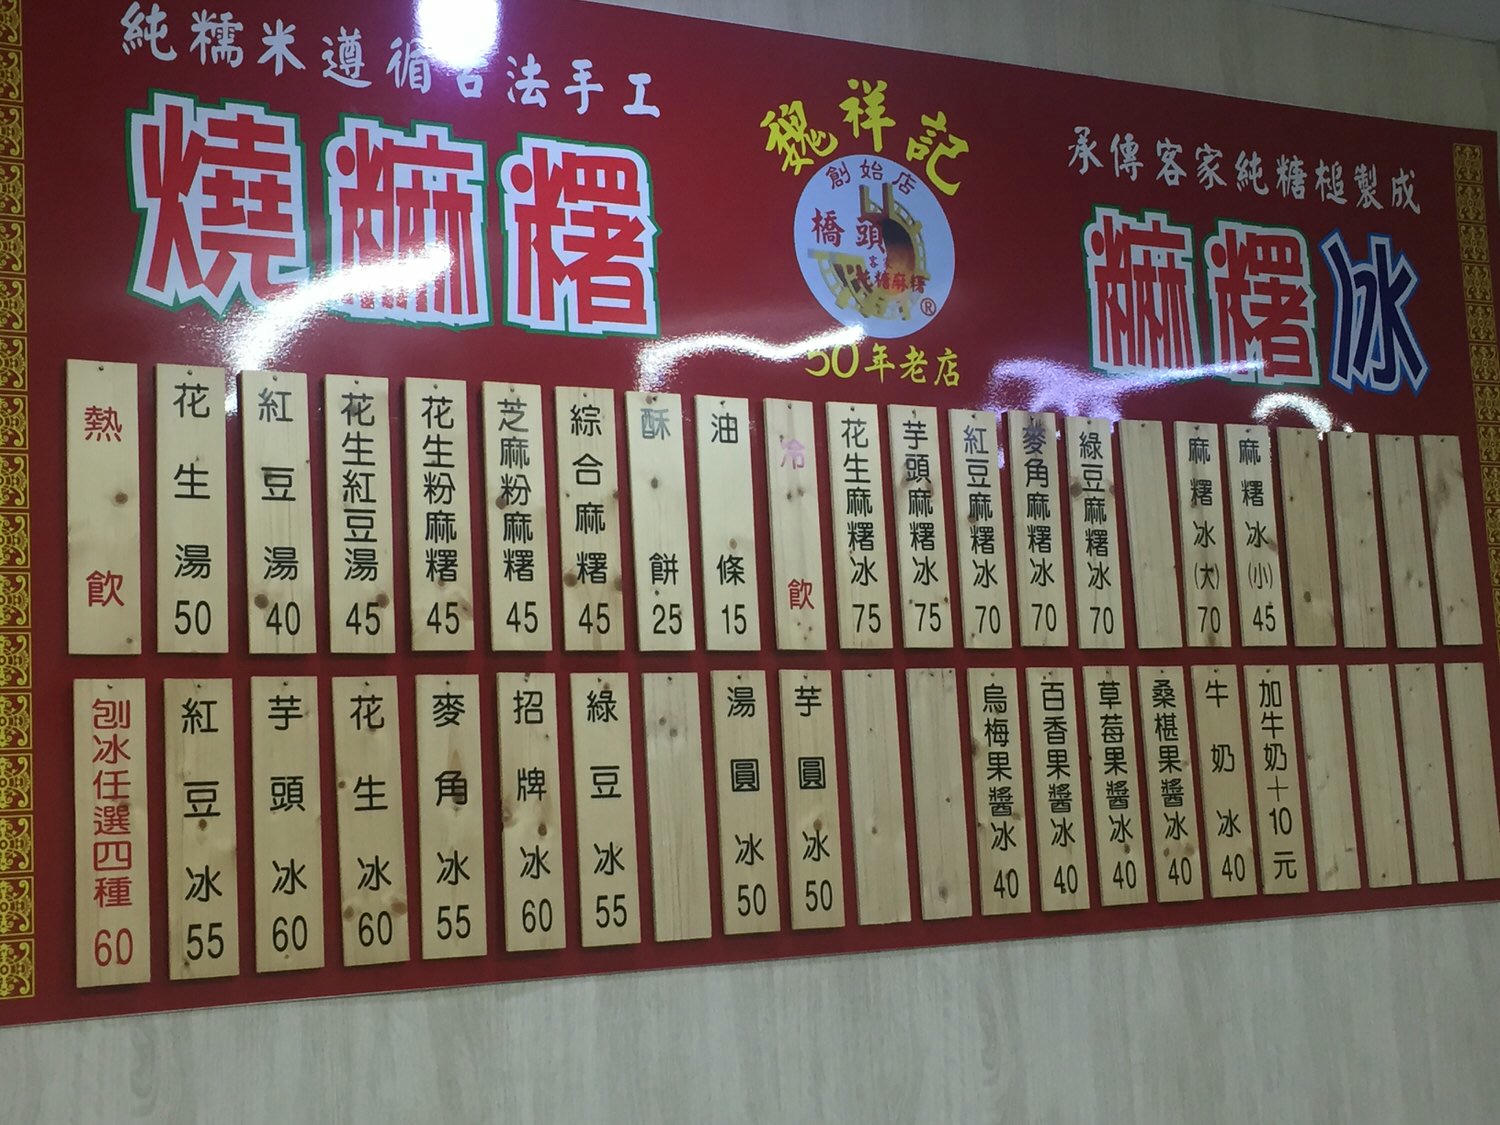 純糯米遵循古法手工
燒麻糬
魏祥記
創始店
橋頭
客家
純糖麻糬
®
50年老店
承傳客家純糖槌製成
麻糬冰
熱飲
花生湯50
紅豆湯40
花生紅豆湯45
花生粉麻糬45
芝麻粉麻糬45
綜合麻糬45
酥餅25
油條15
冷飲
花生麻糬冰75
芋頭麻糬冰75
紅豆麻糬冰70
麥角麻糬冰70
綠豆麻糬冰70
麻糬冰(大)70
麻糬冰(小)45
刨冰任選四種60
紅豆冰55
芋頭冰60
花生冰60
麥角冰55
招牌冰60
綠豆冰55
湯圓冰50
芋圓冰50
烏梅果醬冰40
百香果醬冰40
草莓果醬冰40
桑椹果醬冰40
牛奶冰40
加牛奶十10元